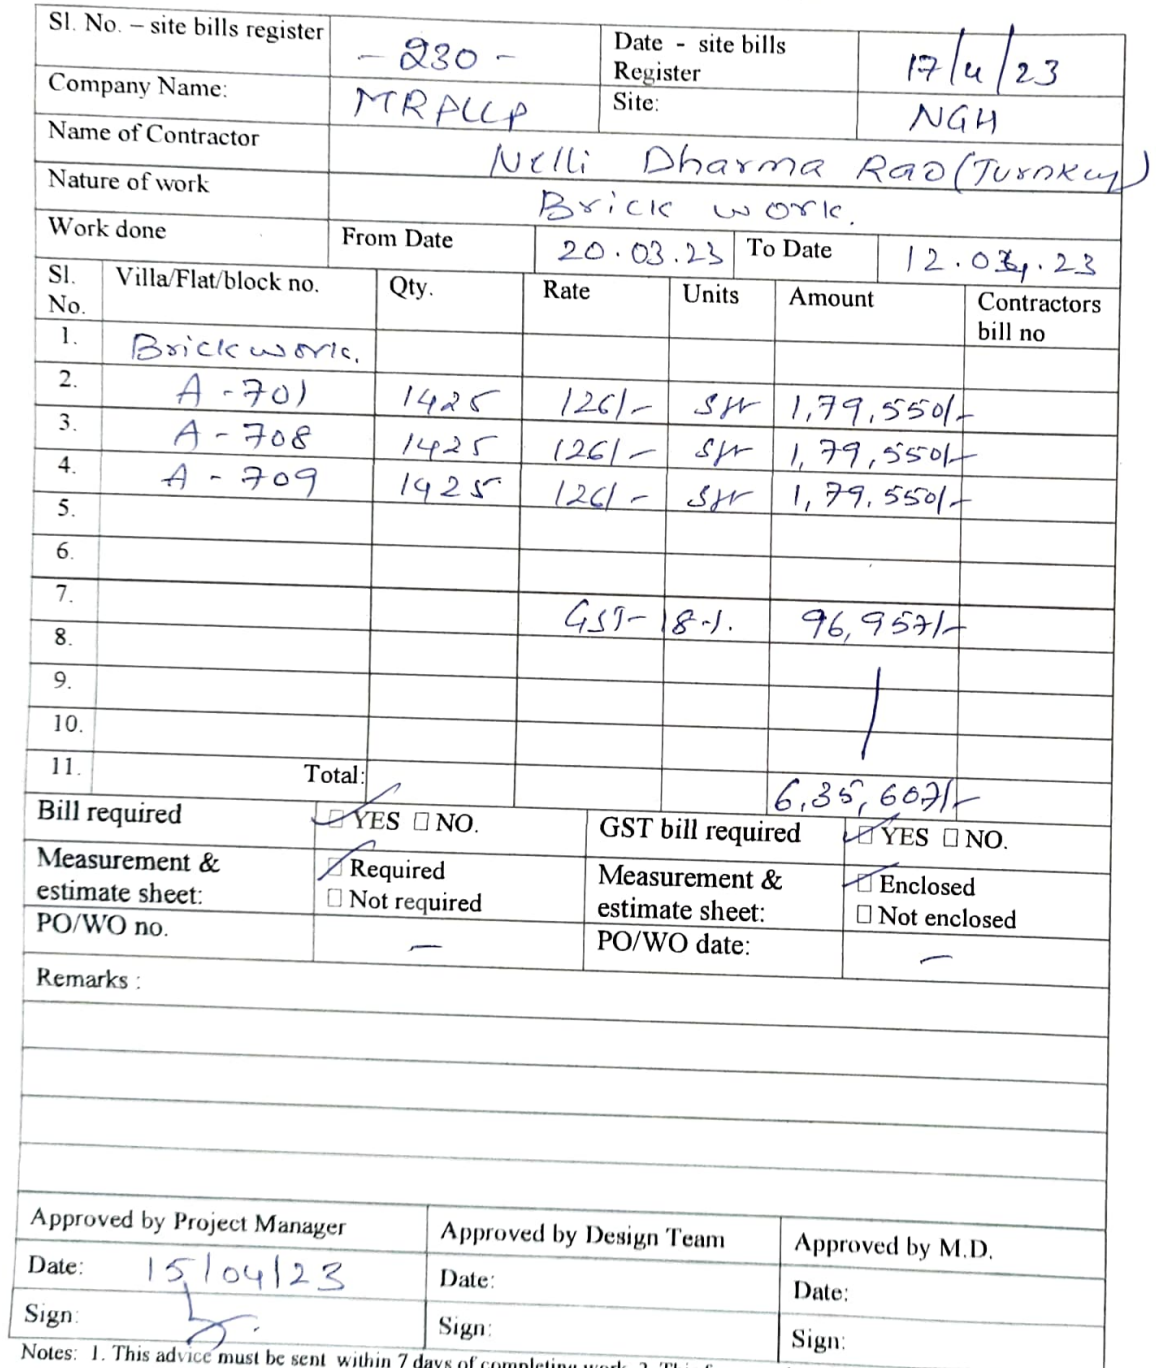 Sl. No. – site bills register - 230 - Date - site bills Register 17/4/23
Company Name: MRPLLP Site: NGH
Name of Contractor Nelli Dharma Rao (Turnkey)
Nature of work Brick work.
Work done From Date 20.03.23 To Date 12.04.23
Sl. No. Villa/Flat/block no. Qty. Rate Units Amount Contractors bill no
1. Brick work.
2. A - 701 1425 126/- sft 1,79,550/-
3. A - 708 1425 126/- sft 1,79,550/-
4. A - 709 1425 126/- sft 1,79,550/-
5.
6.
7. GST- 18%. 96,957/-
8.
9.
10.
11. Total: 6,35,607/-
Bill required ☐ YES ☐ NO. GST bill required ☐ YES ☐ NO.
Measurement & estimate sheet: ☐ Required ☐ Not required Measurement & estimate sheet: ☐ Enclosed ☐ Not enclosed
PO/WO no. – PO/WO date: –
Remarks :
Approved by Project Manager Approved by Design Team Approved by M.D.
Date: 15/04/23 Date: Date:
Sign: Sign: Sign:
Notes: 1. This advice must be sent within 7 days of completing work. 2. This